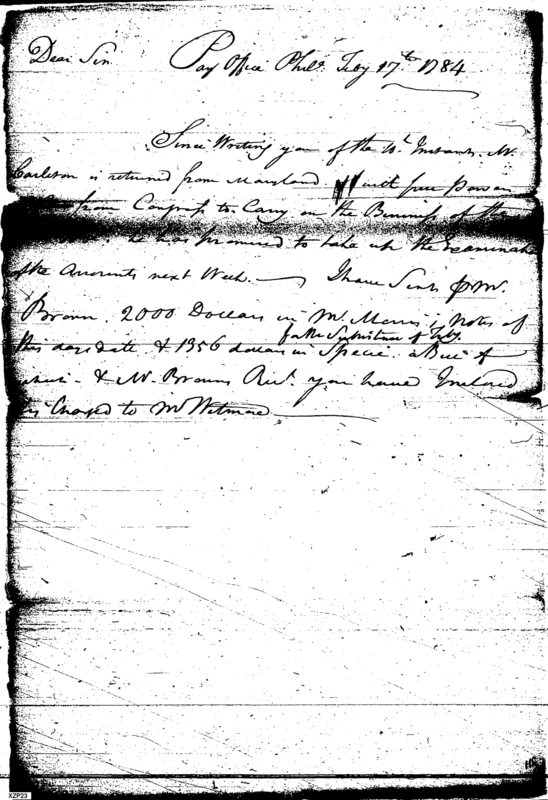 Dear Sir Pay Office Phila. Feby 17th. 1784
Since Writing you of the Instant Mr.
Carleton is returned from Maryland with full Powers
from Congress to Carry on the Business of the
he has promised to take up the Examinat
of the Accounts next Week. I have Sent pr Mr.
Brown. 2000 Dollars in Mr. Morris's Notes of
for the Subsistence of Feby.
this days date & 1356 dollars in Specie. a Bill of
& Mr. Browns Rect. you have Inclosed
is Charged to Mr Wetmore
XZP23